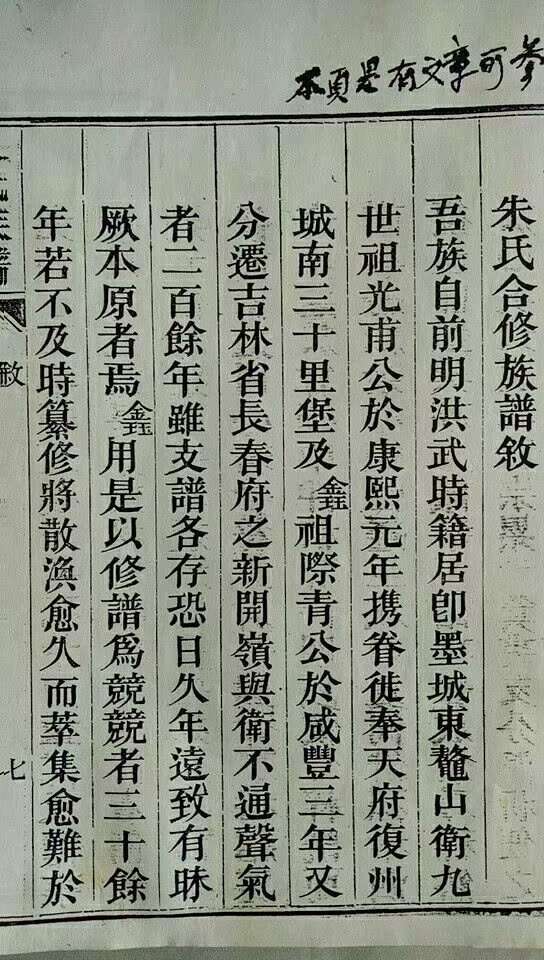 本頁是有文章可参
朱氏合修族譜敘
吾族自前明洪武時籍居卽墨城東鼇山衛九
世祖光甫公於康熙元年携眷徙奉天府復州
城南三十里堡及金珏祖際青公於咸豐二年又
分遷吉林省長春府之新開嶺與衛不通聲氣
者二百餘年雖支譜各存恐日久年遠致有昧
厥本原者焉金珏用是以修譜爲競競者三十餘
年若不及時纂修將散渙愈久而萃集愈難於
敘
七